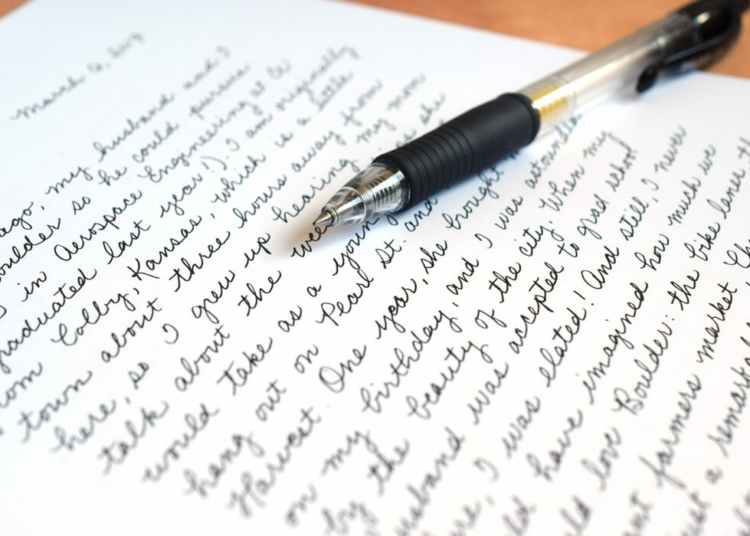 March 6, 2019
ago, my husband and I
Boulder so he could pursue
in Aerospace Engineering at CU
graduated last year!). I am originally
from Colby, Kansas, which is a little
town about three hours away from
here, so I grew up hearing my mom
talk about the she
would take as a young
hang out on Pearl St. and
Harvest. One year, she brought
on my birthday, and I was astounded
by the beauty of the city. When my
husband was accepted to grad school
here, I was elated! And still, I never
could have imagined how much we
would love Boulder: the bike lanes,
farmers market
just a remarkable